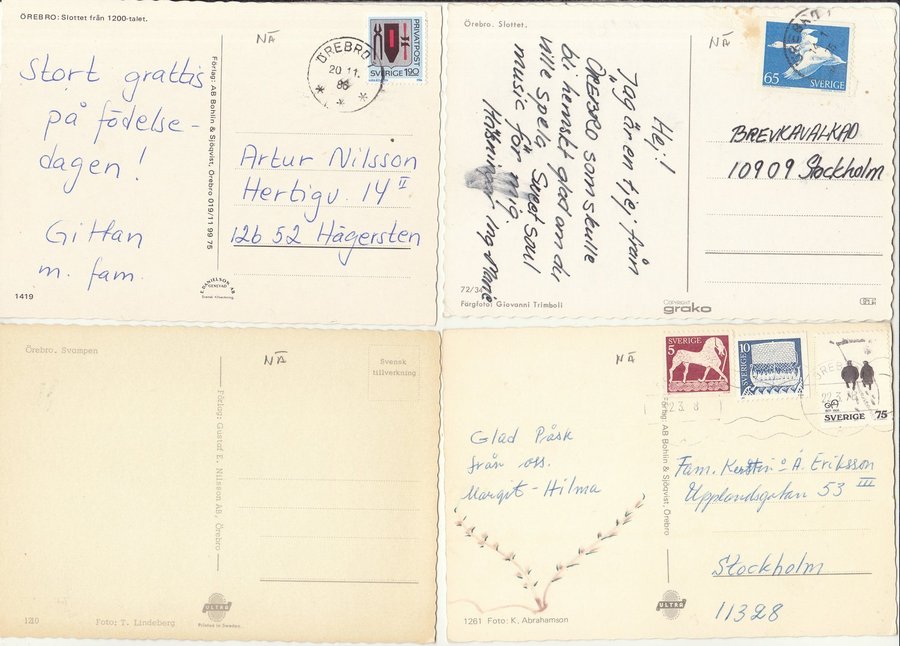 ÖREBRO: Slottet från 1200-talet.
NÄ
ÖREBRO
20 11.
PRIVATPOST
SVERIGE 120
Stort grattis
på födelse-
dagen!
Gittan
m. fam.
Artur Nilsson
Hertigv. 14 II
126 52 Hägersten
Förlag: AB Bohlin & Sjöqvist, Örebro 019/11 99 75
1419
Svensk tillverkning
Örebro. Slottet.
NÄ
65 SVERIGE
Hej!
Jag är en tjej från
ÖREBRO som skulle
bli hemskt glad om du
ville spela Sweet soul
music för mig.
Hälsningar Ing-Marie
BREVKAVALKAD
10909 Stockholm
72/34
Färgfoto: Giovanni Trimboli
Copyright
grako
Örebro. Svampen
NÄ
Svensk
tillverkning
Förlag: Gustaf E. Nilsson AB, Örebro
1210
Foto: T. Lindeberg
ULTRA
Printed in Sweden
NÄ
5 SVERIGE
10 SVERIGE
SVERIGE 75
22.3.
Glad Påsk
från oss.
Margit-Hilma
Förlag: AB Bohlin & Sjöqvist, Örebro
Fam. Kerstin o Å. Eriksson
Upplandsgatan 53 III
Stockholm
11328
1261 Foto: K. Abrahamson
ULTRA